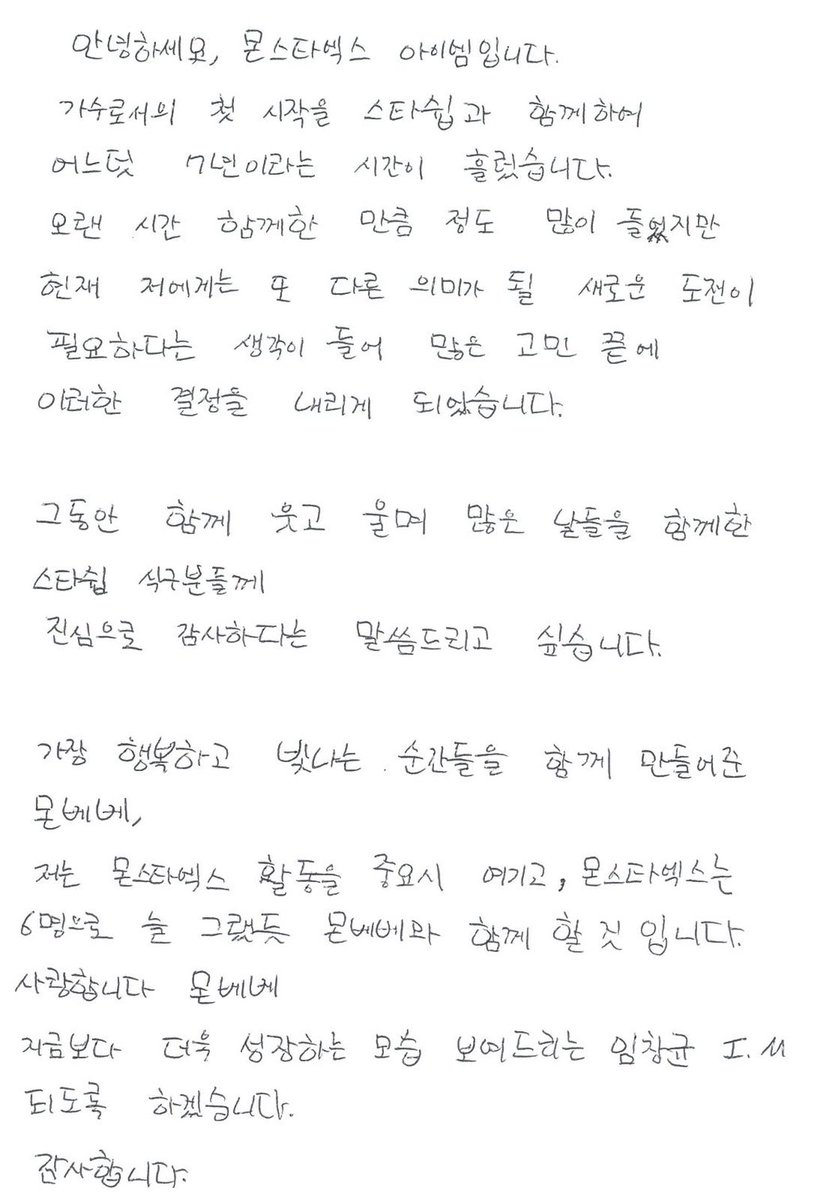 안녕하세요, 몬스타엑스 아이엠입니다.
가수로서의 첫 시작을 스타쉽과 함께하여
어느덧 7년이라는 시간이 흘렀습니다.
오랜 시간 함께한 만큼 정도 많이 들었지만
현재 저에게는 또 다른 의미가 될 새로운 도전이
필요하다는 생각이 들어 많은 고민 끝에
이러한 결정을 내리게 되었습니다.
그동안 함께 웃고 울며 많은 날들을 함께한
스타쉽 식구분들께
진심으로 감사하다는 말씀드리고 싶습니다.
가장 행복하고 빛나는 순간들을 함께 만들어준
몬베베,
저는 몬스타엑스 활동을 중요시 여기고, 몬스타엑스는
6명으로 늘 그랬듯 몬베베와 함께 할 것 입니다.
사랑합니다 몬베베
지금보다 더욱 성장하는 모습 보여드리는 임창균 I.M
되도록 하겠습니다.
감사합니다.